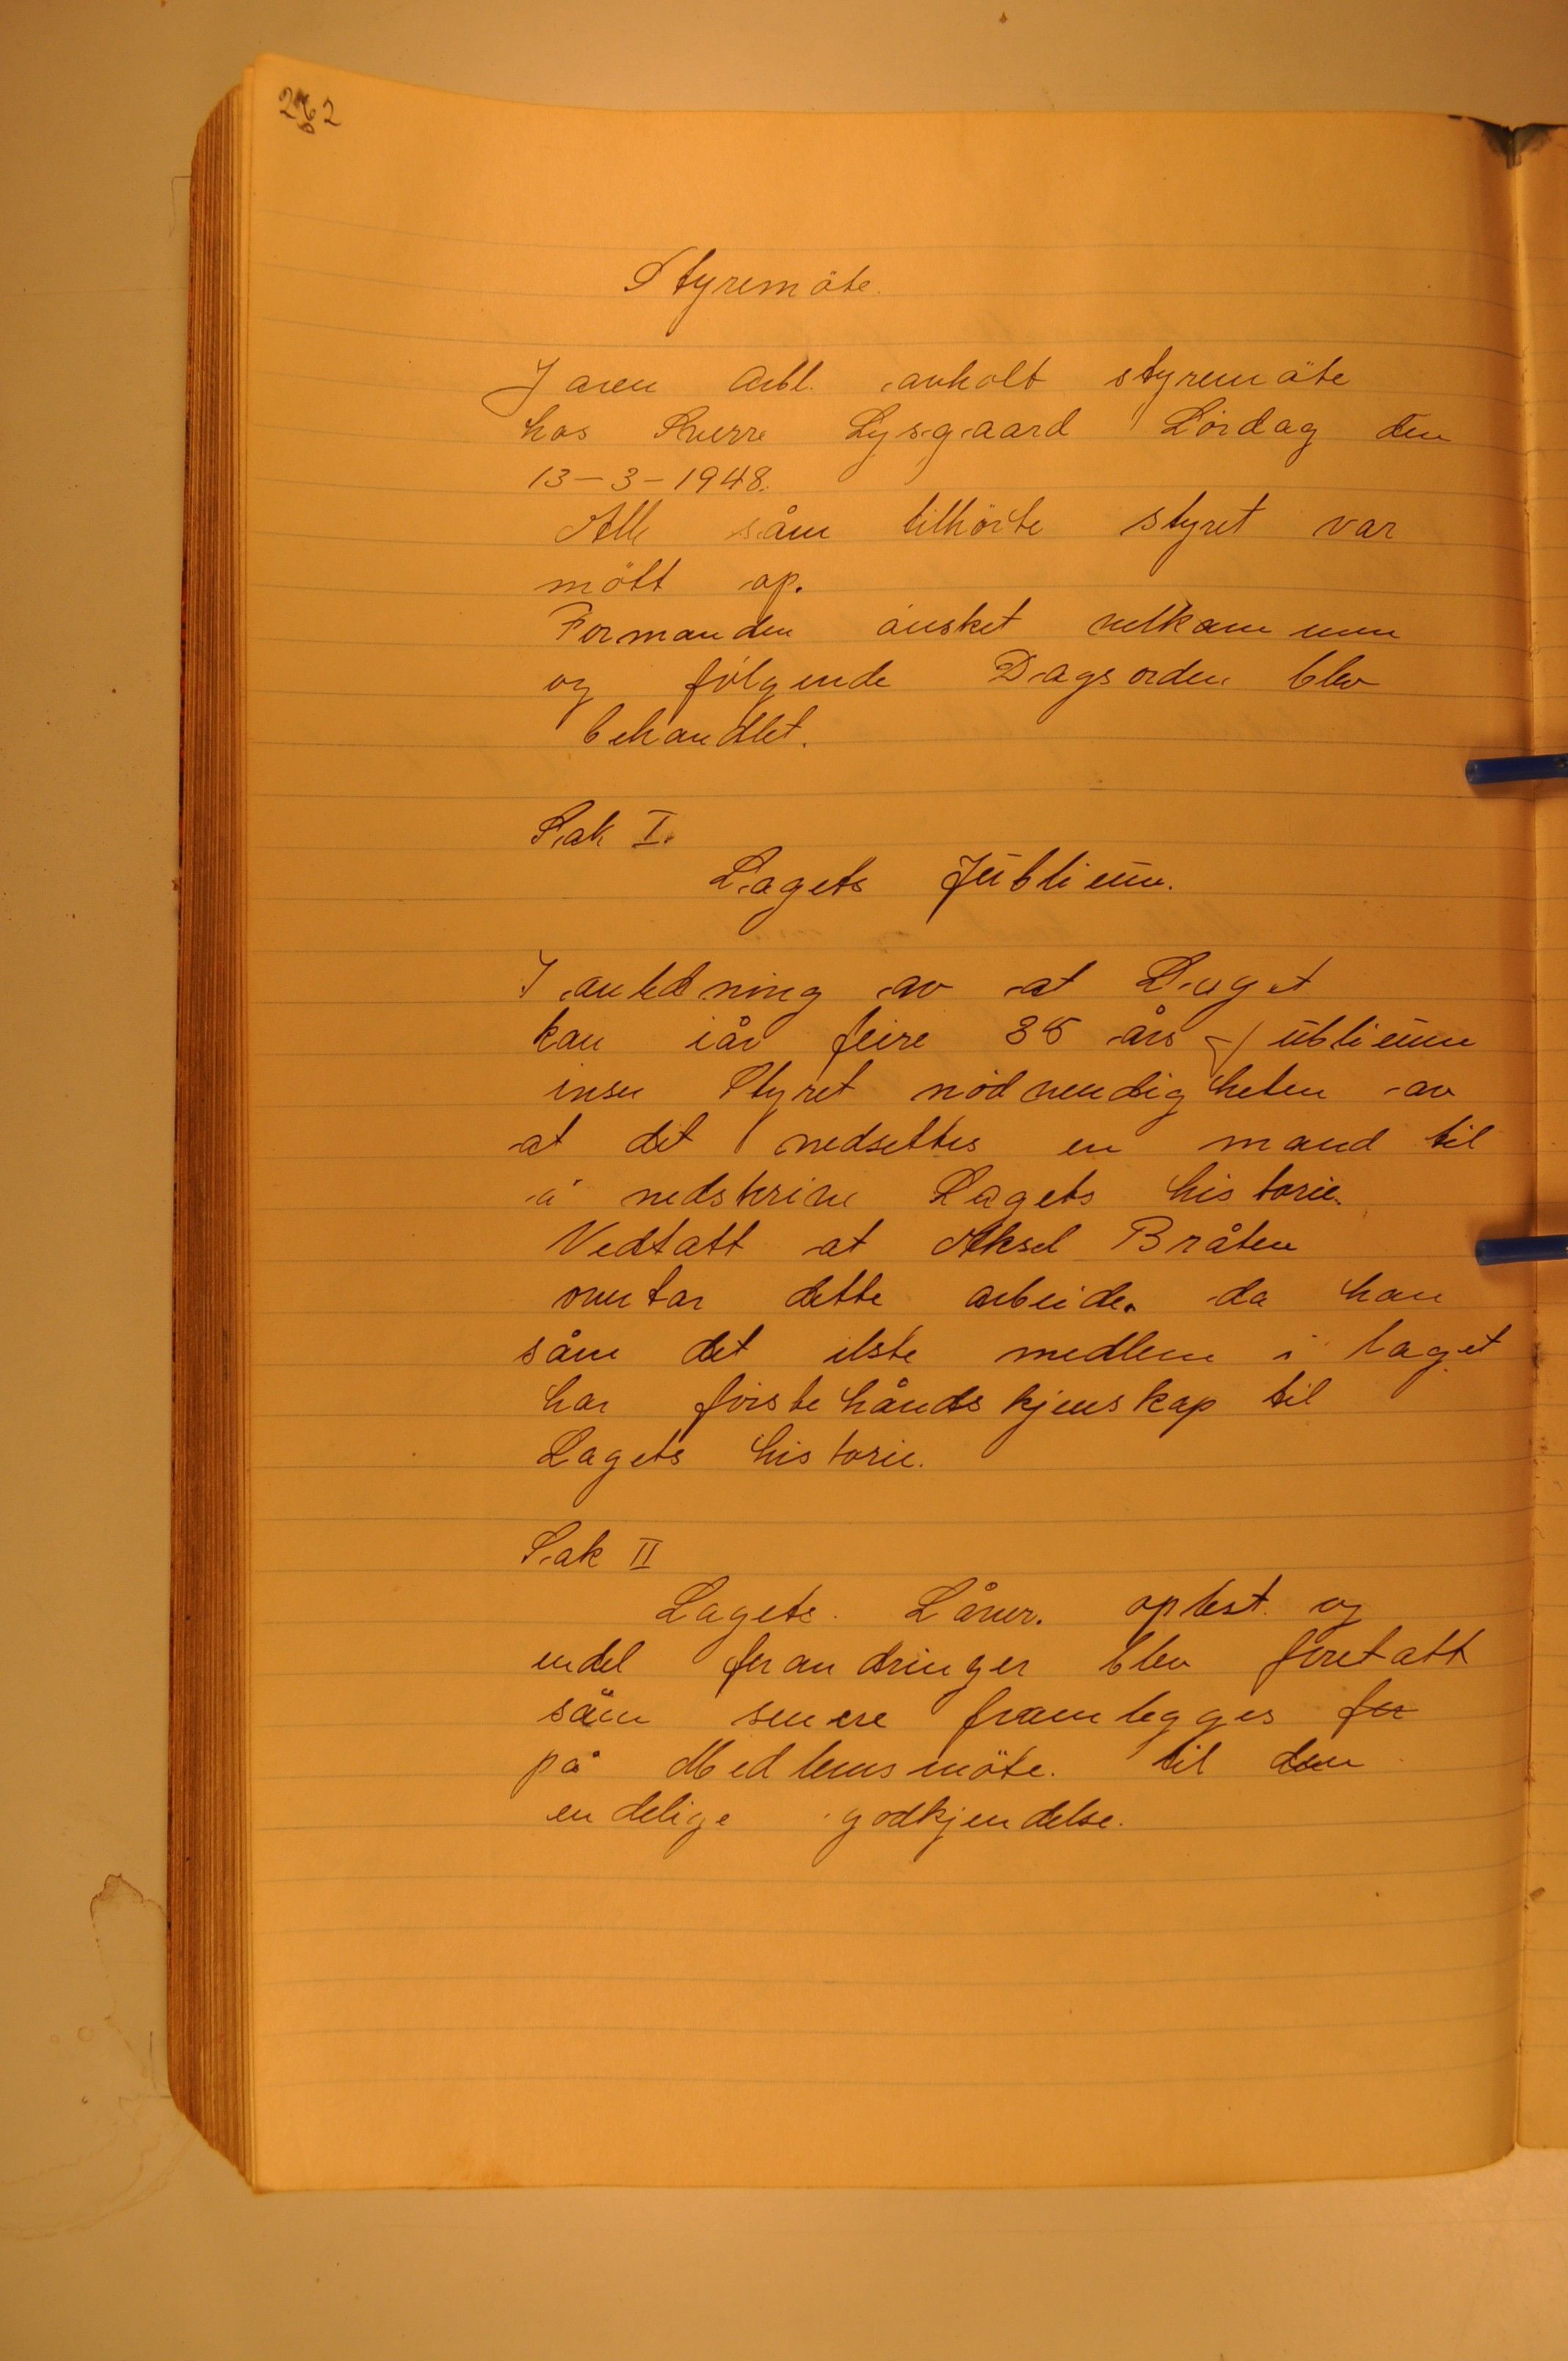 262
Styremöte.
Jaren Arbl. avholt styremöte
hos Sverre Lysgaard Lördag den
13-3-1948.
Alle såm tilhörte styret var
mött op.
Formanden önsket velkommen
og følgende Dagsorden blev
behandlet.
Sak I.
Lagets Jublieum.
I anledning av at Laget
kan iår feire 35 års Jublieum
inser Styret nödvendigheten av
at det nedsettes en mand til
å nedskrive Lagets historie.
Vedtatt at Aksel Bråten
overtar dette arbeide. da han
såm det elste medlem i laget
har förstehåndskjenskap til
Lagets historie.
Sak II
Lagets. Låver. oplest. og
endel forandringer blev foretatt
såm senere framlegges for
på Medlemsmöte. til den
endelige godkjendelse.